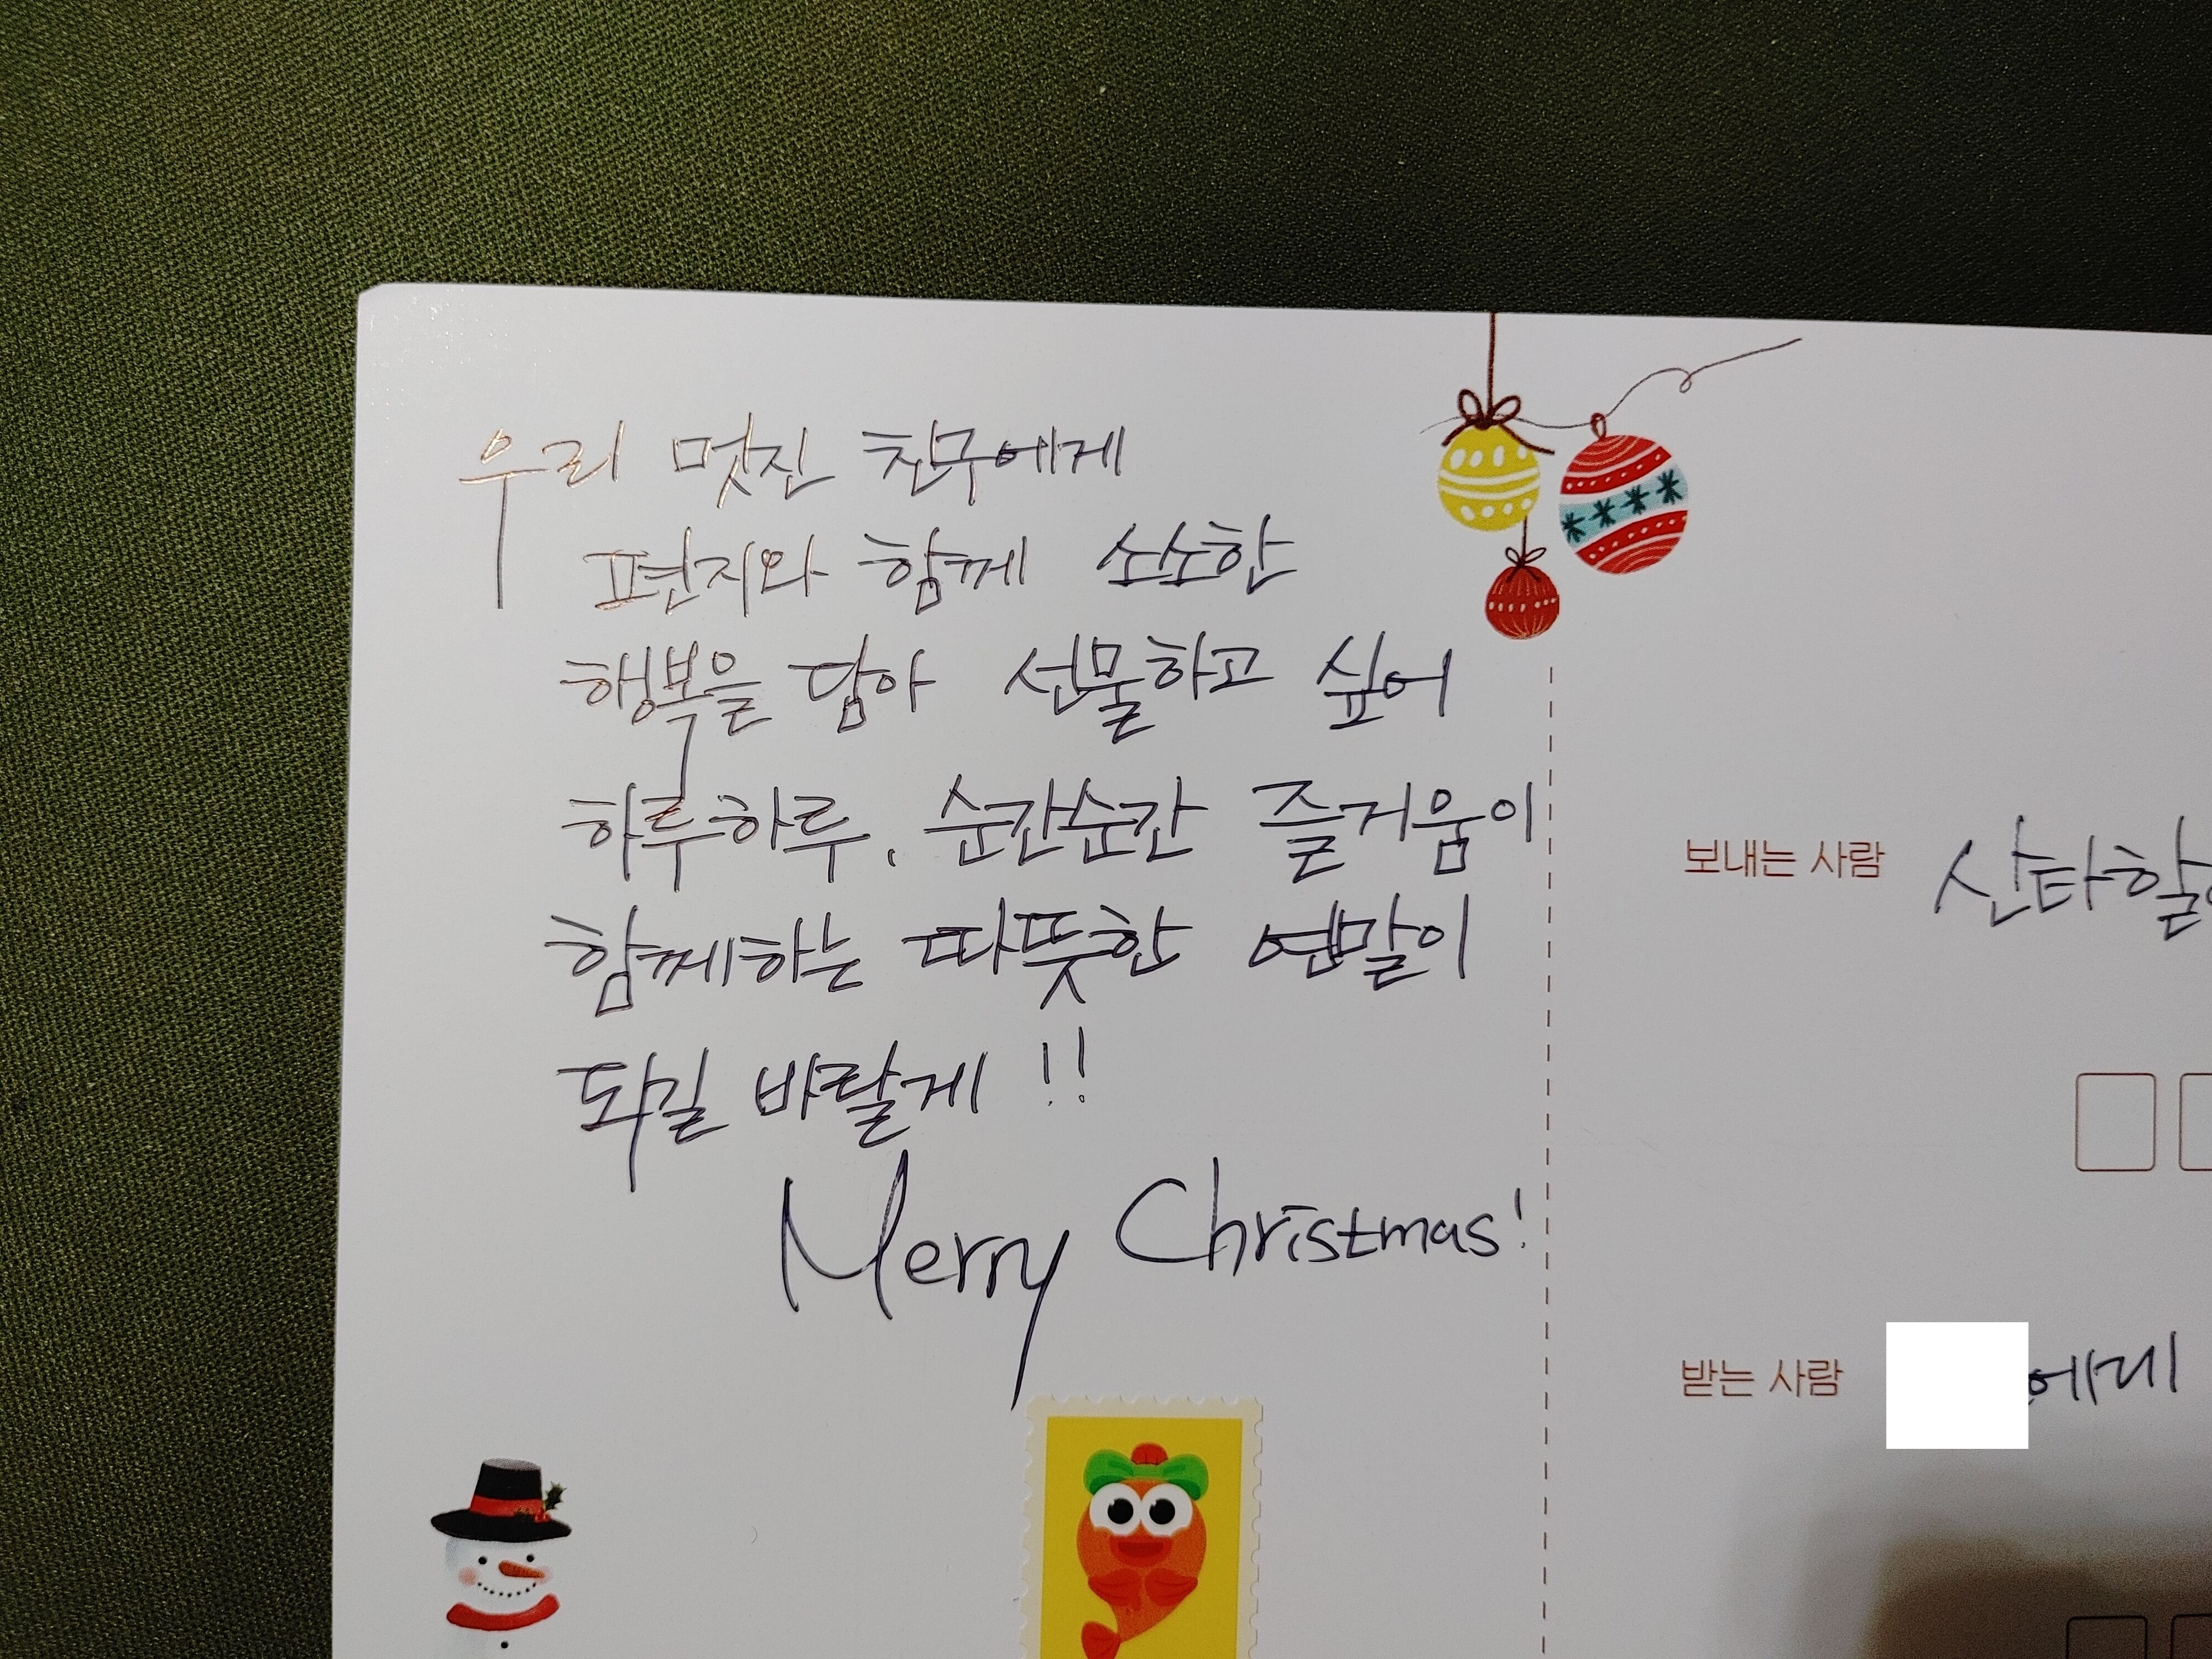 우리 멋진 친구에게
편지와 함께 소소한
행복을 담아 선물하고 싶어
하루하루, 순간순간 즐거움이
함께하는 따뜻한 연말이
되길 바랄게 !!
Merry Christmas!
보내는 사람 산타할
받는 사람 에게